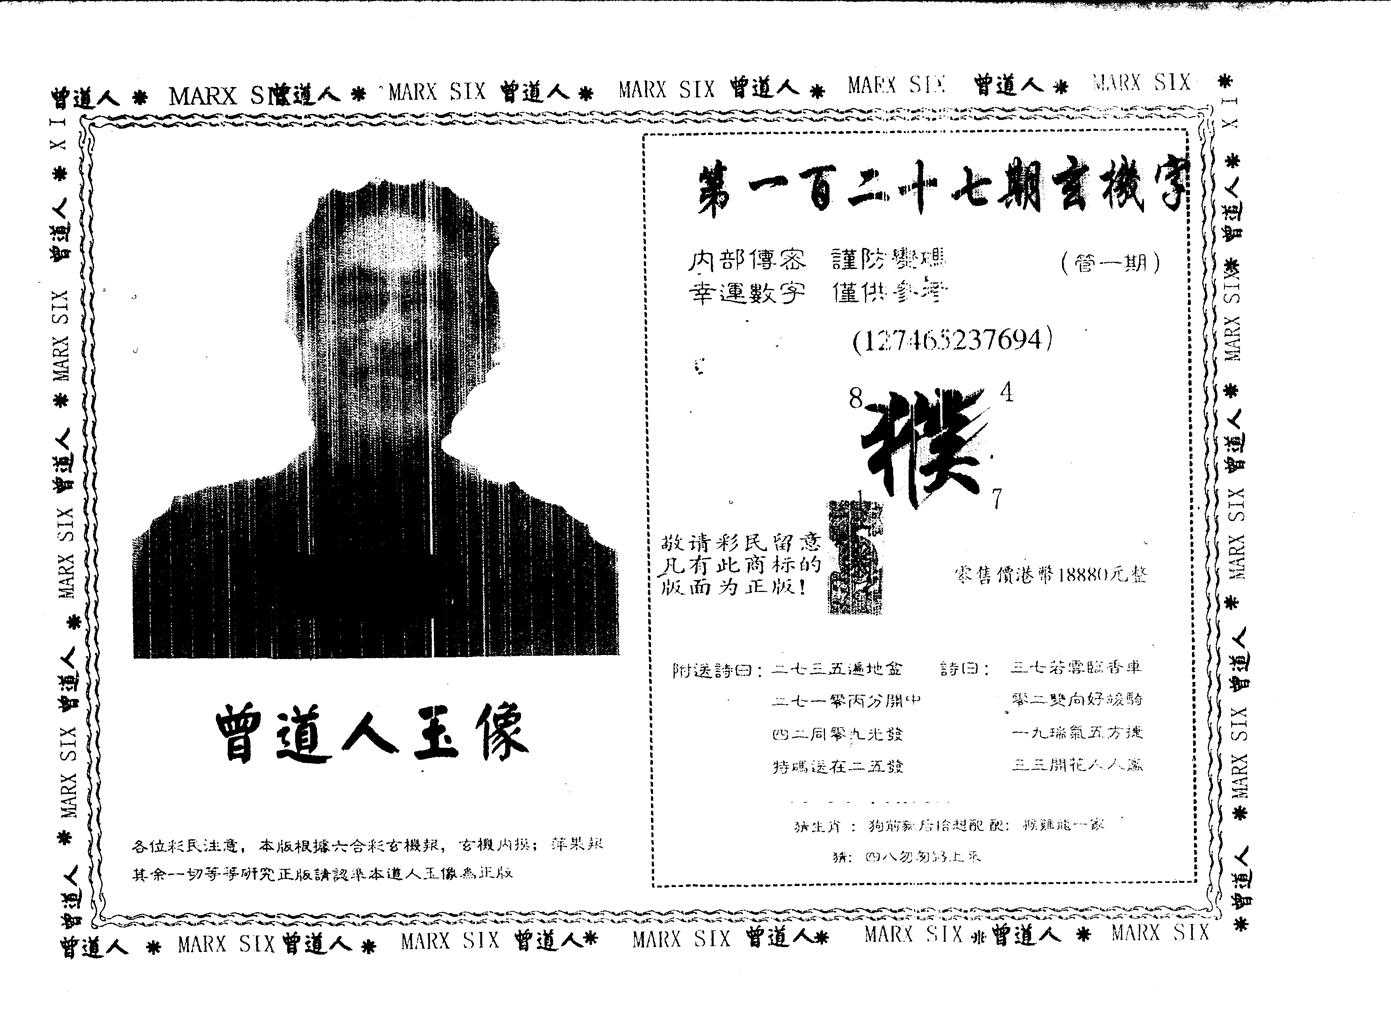 曾道人 * MARX SIX 曾道人 * MARX SIX 曾道人 * MARX SIX 曾道人 * MARX SIX 曾道人 * MARX SIX *
曾道人 * MARX SIX 曾道人 * MARX SIX 曾道人 * XI
XI * 曾道人 * MARX SIX * 曾道人 * MARX SIX * 曾道人 * MARX SIX * 曾道人 *
曾道人玉像
各位彩民注意，本版根據六合彩玄機報，玄機内摸；萍果報
其余一切等等研究正版請認準本道人玉像為正版
第一百二十七期玄機字
内部傳密 謹防變碼
(管一期)
幸運數字 僅供參考
(127465237694)
8 4
1 7
敬请彩民留意
凡有此商标的
版面为正版!
零售價港幣18880元整
附送詩曰: 二七三五遍地金
二七一零丙分開中
四二同零九光發
特碼送在二五發
詩曰: 三七若雲臨香車
零二雙向好駿騎
一九瑞氣五方捷
三三開花人人鳳
猜生肖: 狗前 后 想配 配: 猴雞龍一家
猜: 四八勿勿 上來
曾道人 * MARX SIX 曾道人 * MARX SIX 曾道人* MARX SIX 曾道人* MARX SIX 曾道人 * MARX SIX